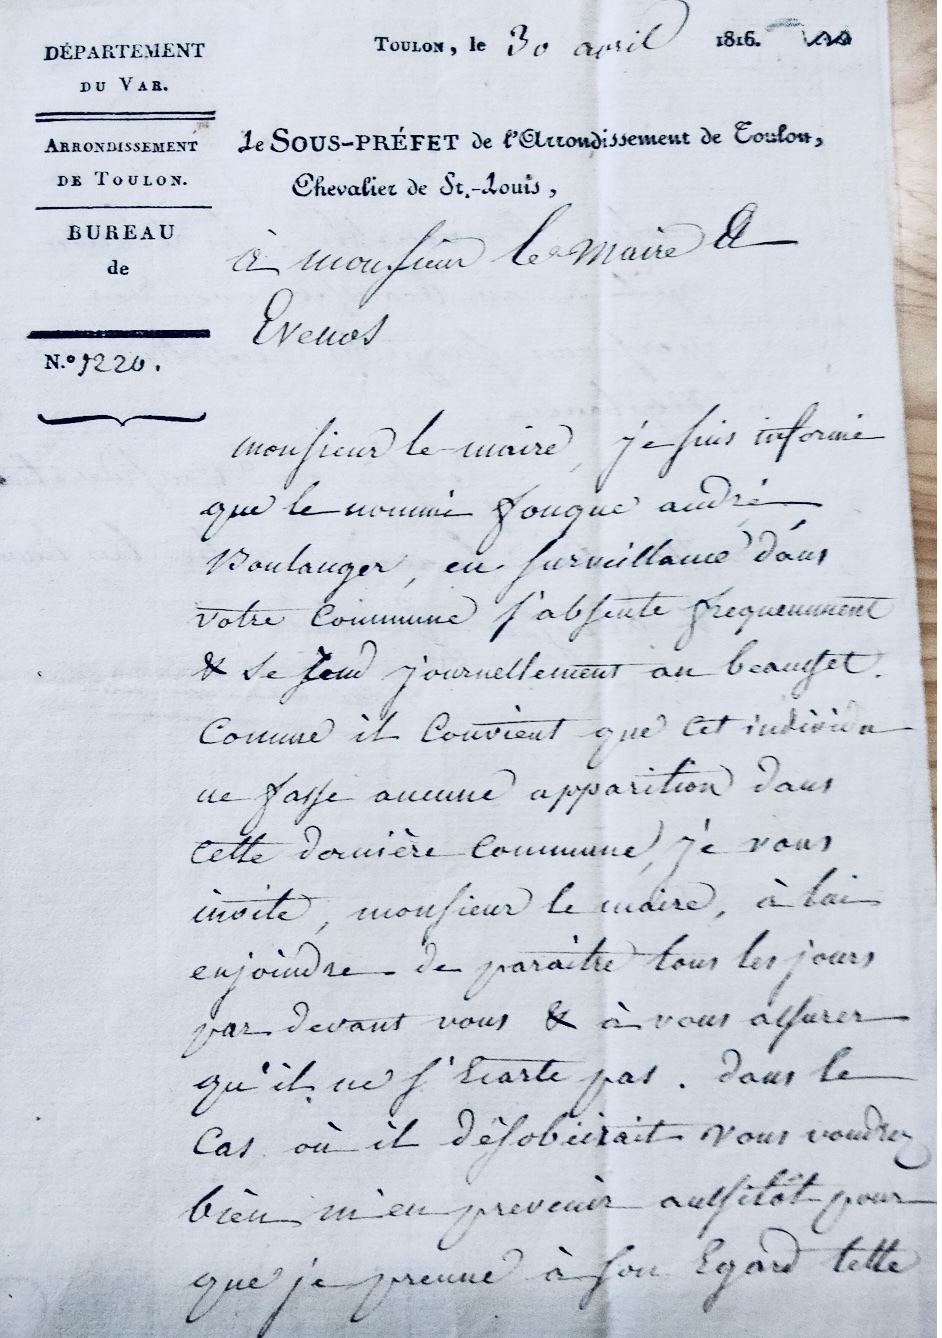 DÉPARTEMENT
DU VAR.
ARRONDISSEMENT
DE TOULON.
BUREAU
de
N.º 9220.
TOULON, le 30 avril 1816.
Le SOUS-PRÉFET de l'Arrondissement de Toulon,
Chevalier de St.-Louis,
à monsieur le Maire d'
Evenos
monsieur le maire, je suis informé
que le nommé fouque andré
Boulanger, en surveillance dans
votre commune s'absente frequemment
& se rend journellement au beausset.
Comme il Convient que cet individu
ne fasse aucune apparition dans
cette dernière Commune, je vous
invite, monsieur le maire, à lui
enjoindre de paraitre tous les jours
par devant vous & à vous assurer
qu'il ne s'Ecarte pas. dans le
Cas où il désobéirait vous voudrez
bien m'en prevenir aussitôt pour
que je prenne à son Egard telle